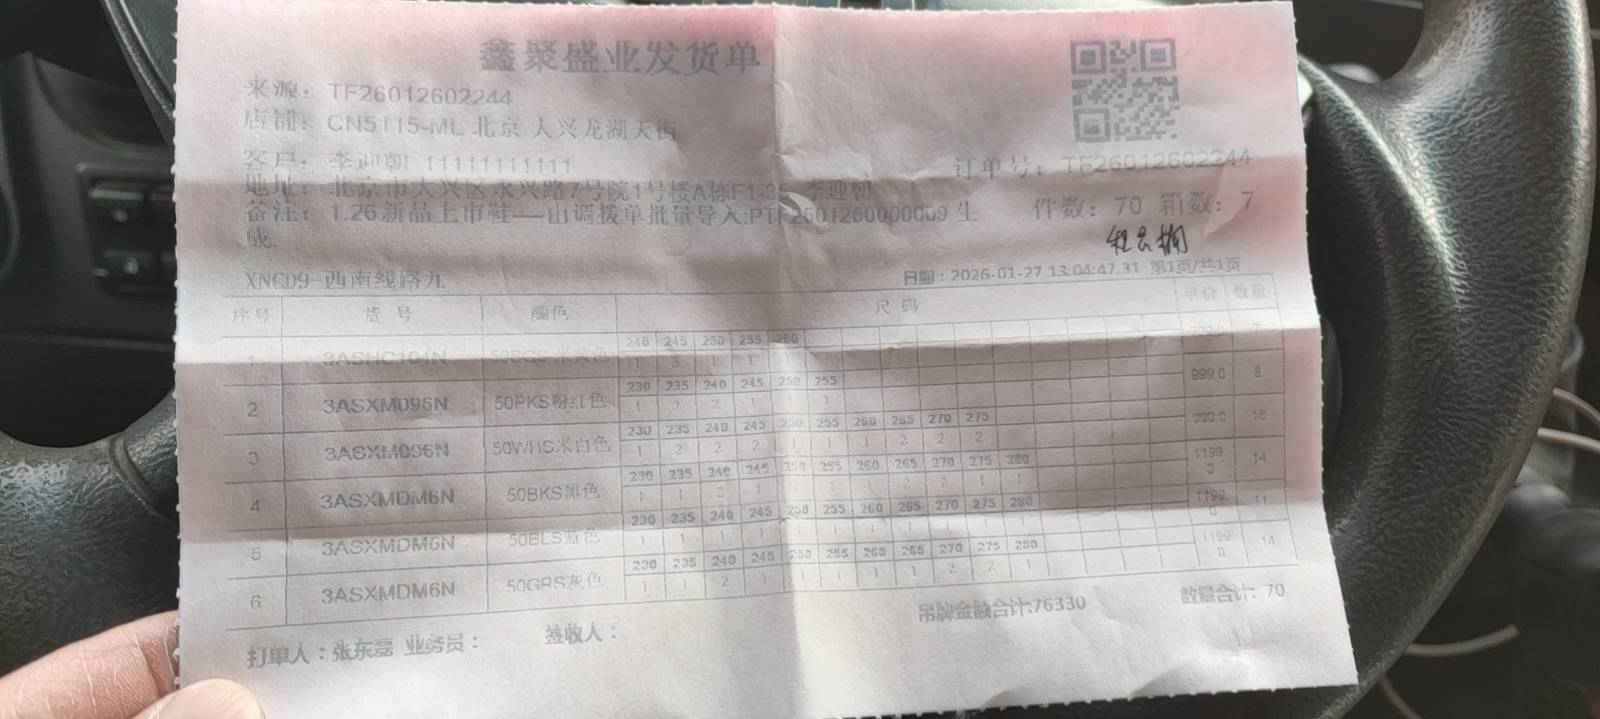 鑫聚盛业发货单
来源：TF26012602244
店铺：CN5115-ML 北京 大兴龙湖天街
客户：李迎朝 11111111111 订单号：TF26012602244
地址：北京市大兴区永兴路7号院1号楼A栋F1-35 李迎朝
备注：1.26新品上市鞋——由调拨单批量导入:PTF2601260000009 生 件数：70 箱数：7
成.
XNCD9-西南线路九 日期：2026-01-27 13:04:47.31 第1页/共1页
序号 货号 颜色 尺码 单价 数量
240 245 250 255 260
1 3ASHC104N 50BGS 799.0 7
1 3 1 1
230 235 240 245 250 255
2 3ASXM096N 50PKS粉红色 999.0 8
1 2 2 1 1
230 235 240 245 250 255 260 265 270 275
3 3ASXM096N 50WHS米白色 999.0 16
1 2 2 2 1 1 1 2 2 2
230 235 240 245 250 255 260 265 270 275 280
4 3ASXMDM6N 50BKS黑色 1199.0 14
1 1 2 1 1 1 1 2 2 1 1
230 235 240 245 250 255 260 265 270 275 280
5 3ASXMDM6N 50BLS蓝色 1199.0 11
1 1 1 1 1 1 1 1 1 1 1
230 235 240 245 250 255 260 265 270 275 280
6 3ASXMDM6N 50GRS灰色 1199.0 14
1 1 2 1 1 1 1 1 2 2 1
吊牌金额合计:76330 数量合计: 70
打单人：张东磊 业务员： 签收人：